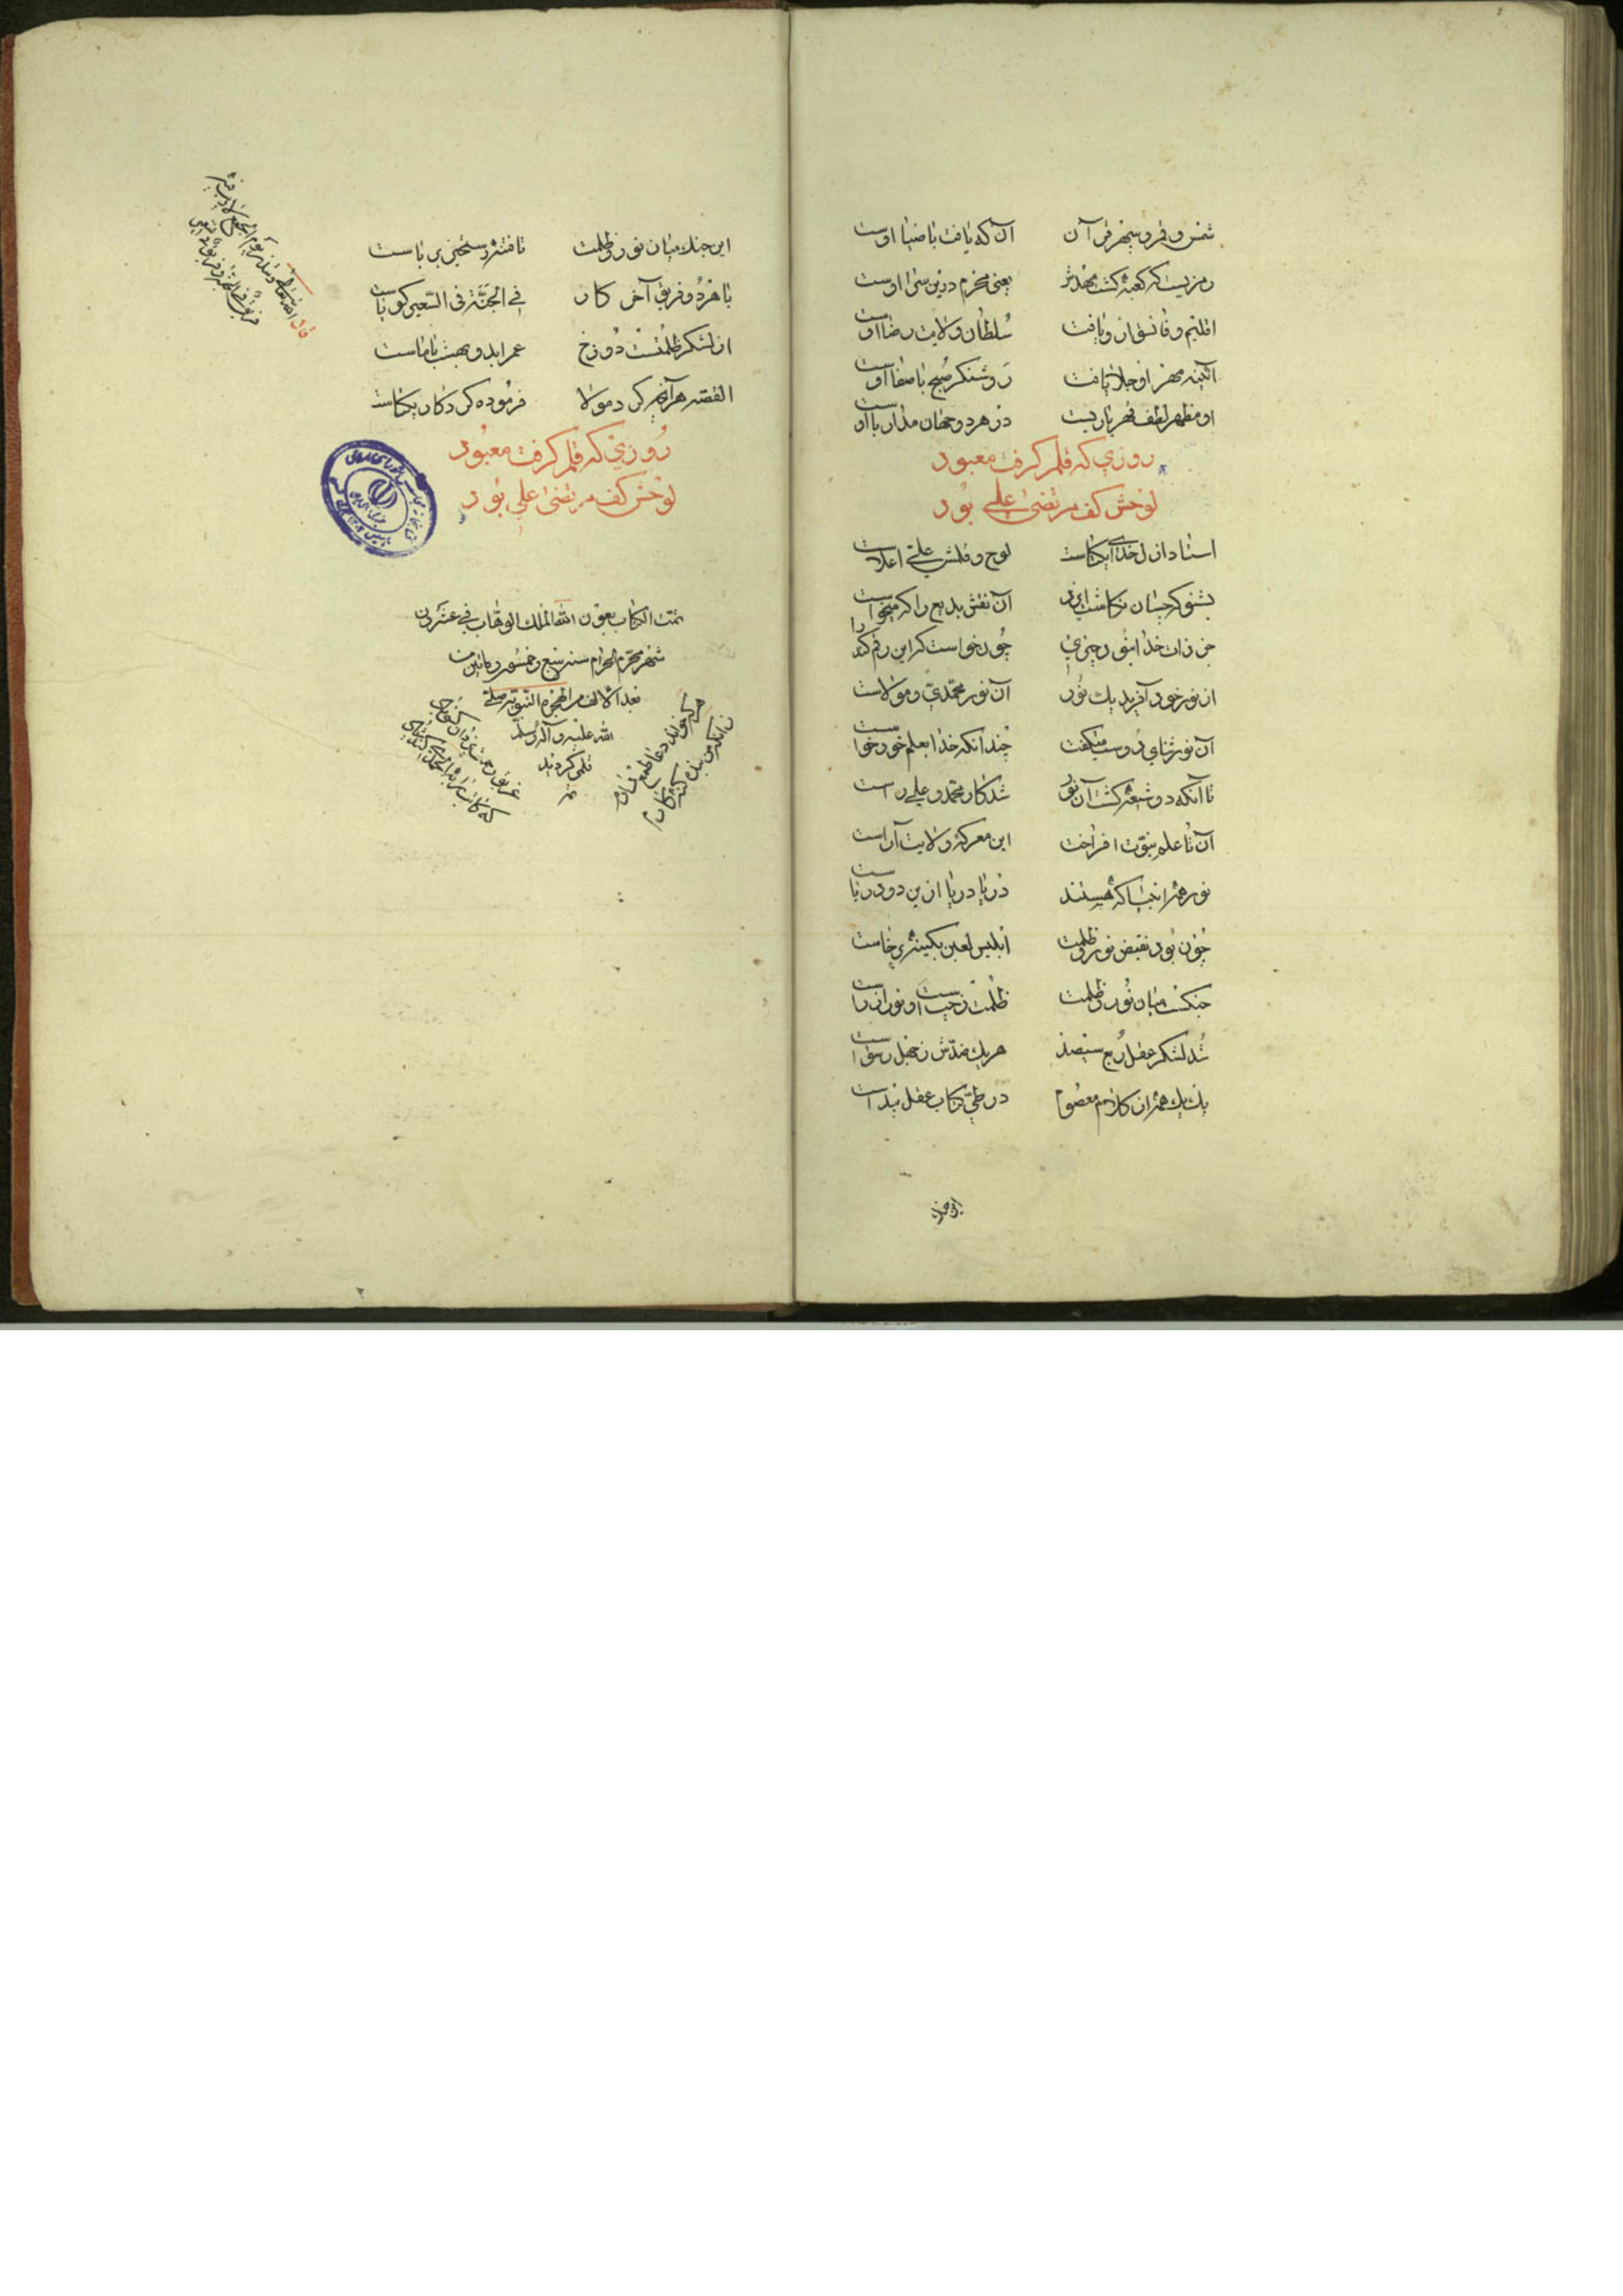 شمس و قمر و سپهر قرآن    آن که یافت با ضیا اوست
رمزیست که کعبه کشت مهدش    یعنی محرم درین سرا اوست
اقلیم وفا نسق ازو یافت    سلطان ولایت رضا اوست
آئینه مهر ازو جلا یافت    روشنکر صبح با صفا اوست
او مظهر لطف قهر باریست    در هر دو جهان مدار با اوست
روزی که قلم کرفت معبود
لوحش کف مرتضی علی بود
استاد ازل خدای یکتاست    لوح و قلمش علی اعلاست
بشنو که چسان نکاشت ایزد    آن نقش بدیع را که میخواست
جز ذات خدا نبود چیزی    چون خواست که این رقم کند راست
از نور خود آفرید یک نور    آن نور محمدی و مولاست
آن نور ثنای دوست میکفت    چندانکه خدا بعلم خود خواست
تا آنکه دو شعبه کشت آن نور    شد کار محمد و علی راست
آن تا علم نبوت افراخت    این معرکه ولایت آراست
نور همه انبیا که هستند    دریا دریا ازین دو دریاست
چون بود نقیض نور و ظلمت    ابلیس لعین بکینه برخاست
جنکست میان نور و ظلمت    ظلمت ز چپ است و نور از راست
شد لشکر عقل ربع سیصد    هر یک ضدش ز جهل رسواست
یک یک همه از کلام معصوم    در طی کتاب عقل پیداست
این جنک
این جنک میان نور و ظلمت    تا فتنه رستخیز برپاست
با هر دو فریق آخر کار    فی الجنة فی السعیر کویاست
از لشکر ظلمتست دوزخ    عمر ابد و بهشت با ماست
القصه هر آنچه کرد مولا    فرموده کردکار یکتاست
روزی که قلم کرفت معبود
لوحش کف مرتضی علی بود
قال الله تعالی وتنذر یوم الجمع لا ریب فیه
فریق فی الجنة وفریق فی السعیر
تمت الکتاب بعون الله الملک الوهاب فی عشر
شهر محرم الحرام سنه سبع و خمسون و مأتین
بعد الالف من الهجرة النبویه صلی
الله علیه و آله و سلم
قلمی کردید
هر که خواند دعا طمع دارم
زانکه من بنده کنه کارم
غریق رحمت یزدان کسی باد
که کاتب را به الحمدی کند یاد